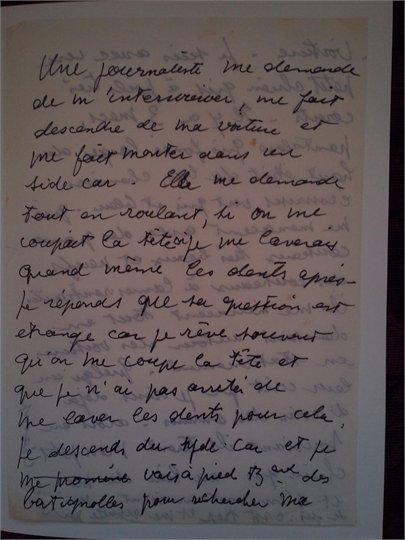 Une journaliste me demande
de m'interviewer, me fait
descendre de ma voiture et
me fait monter dans un
side car. Elle me demande
tout en roulant, si on me
coupait la tête je me laverais
quand même les dents après-
Je réponds que sa question est
etrange car je rêve souvent
qu'on me coupe la tête et
que je n'ai pas arrêté de
me laver les dents pour cela,
je descends du side car et je
me promène vais à pied Bd des
batignolles pour rechercher ma